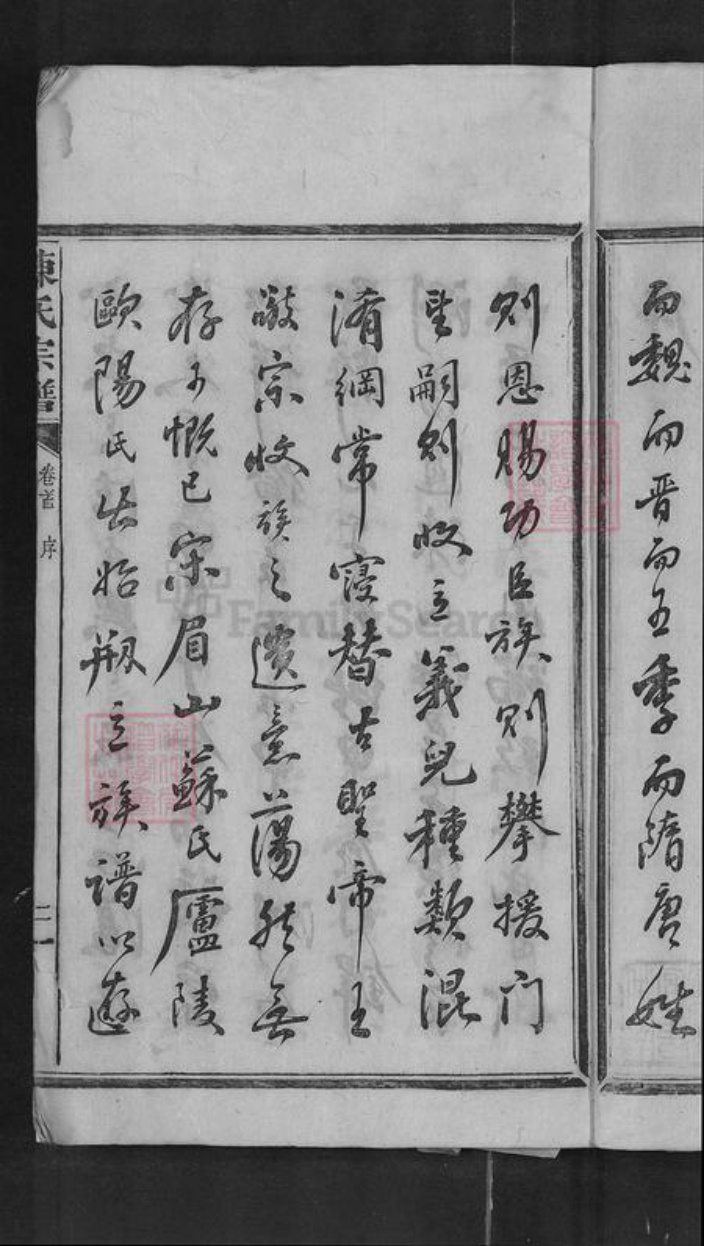 而魏而晉而五季而隋唐姓
則恩賜功臣族則攀援門
望嗣則收立義兒種類混
淆綱常寖替古聖帝王
敬宗收族之遺意蕩然無
存可慨已宋眉山蘇氏廬陵
歐陽氏出始剏立族譜以遊
陳氏宗譜
卷首 序
二
FamilySearch